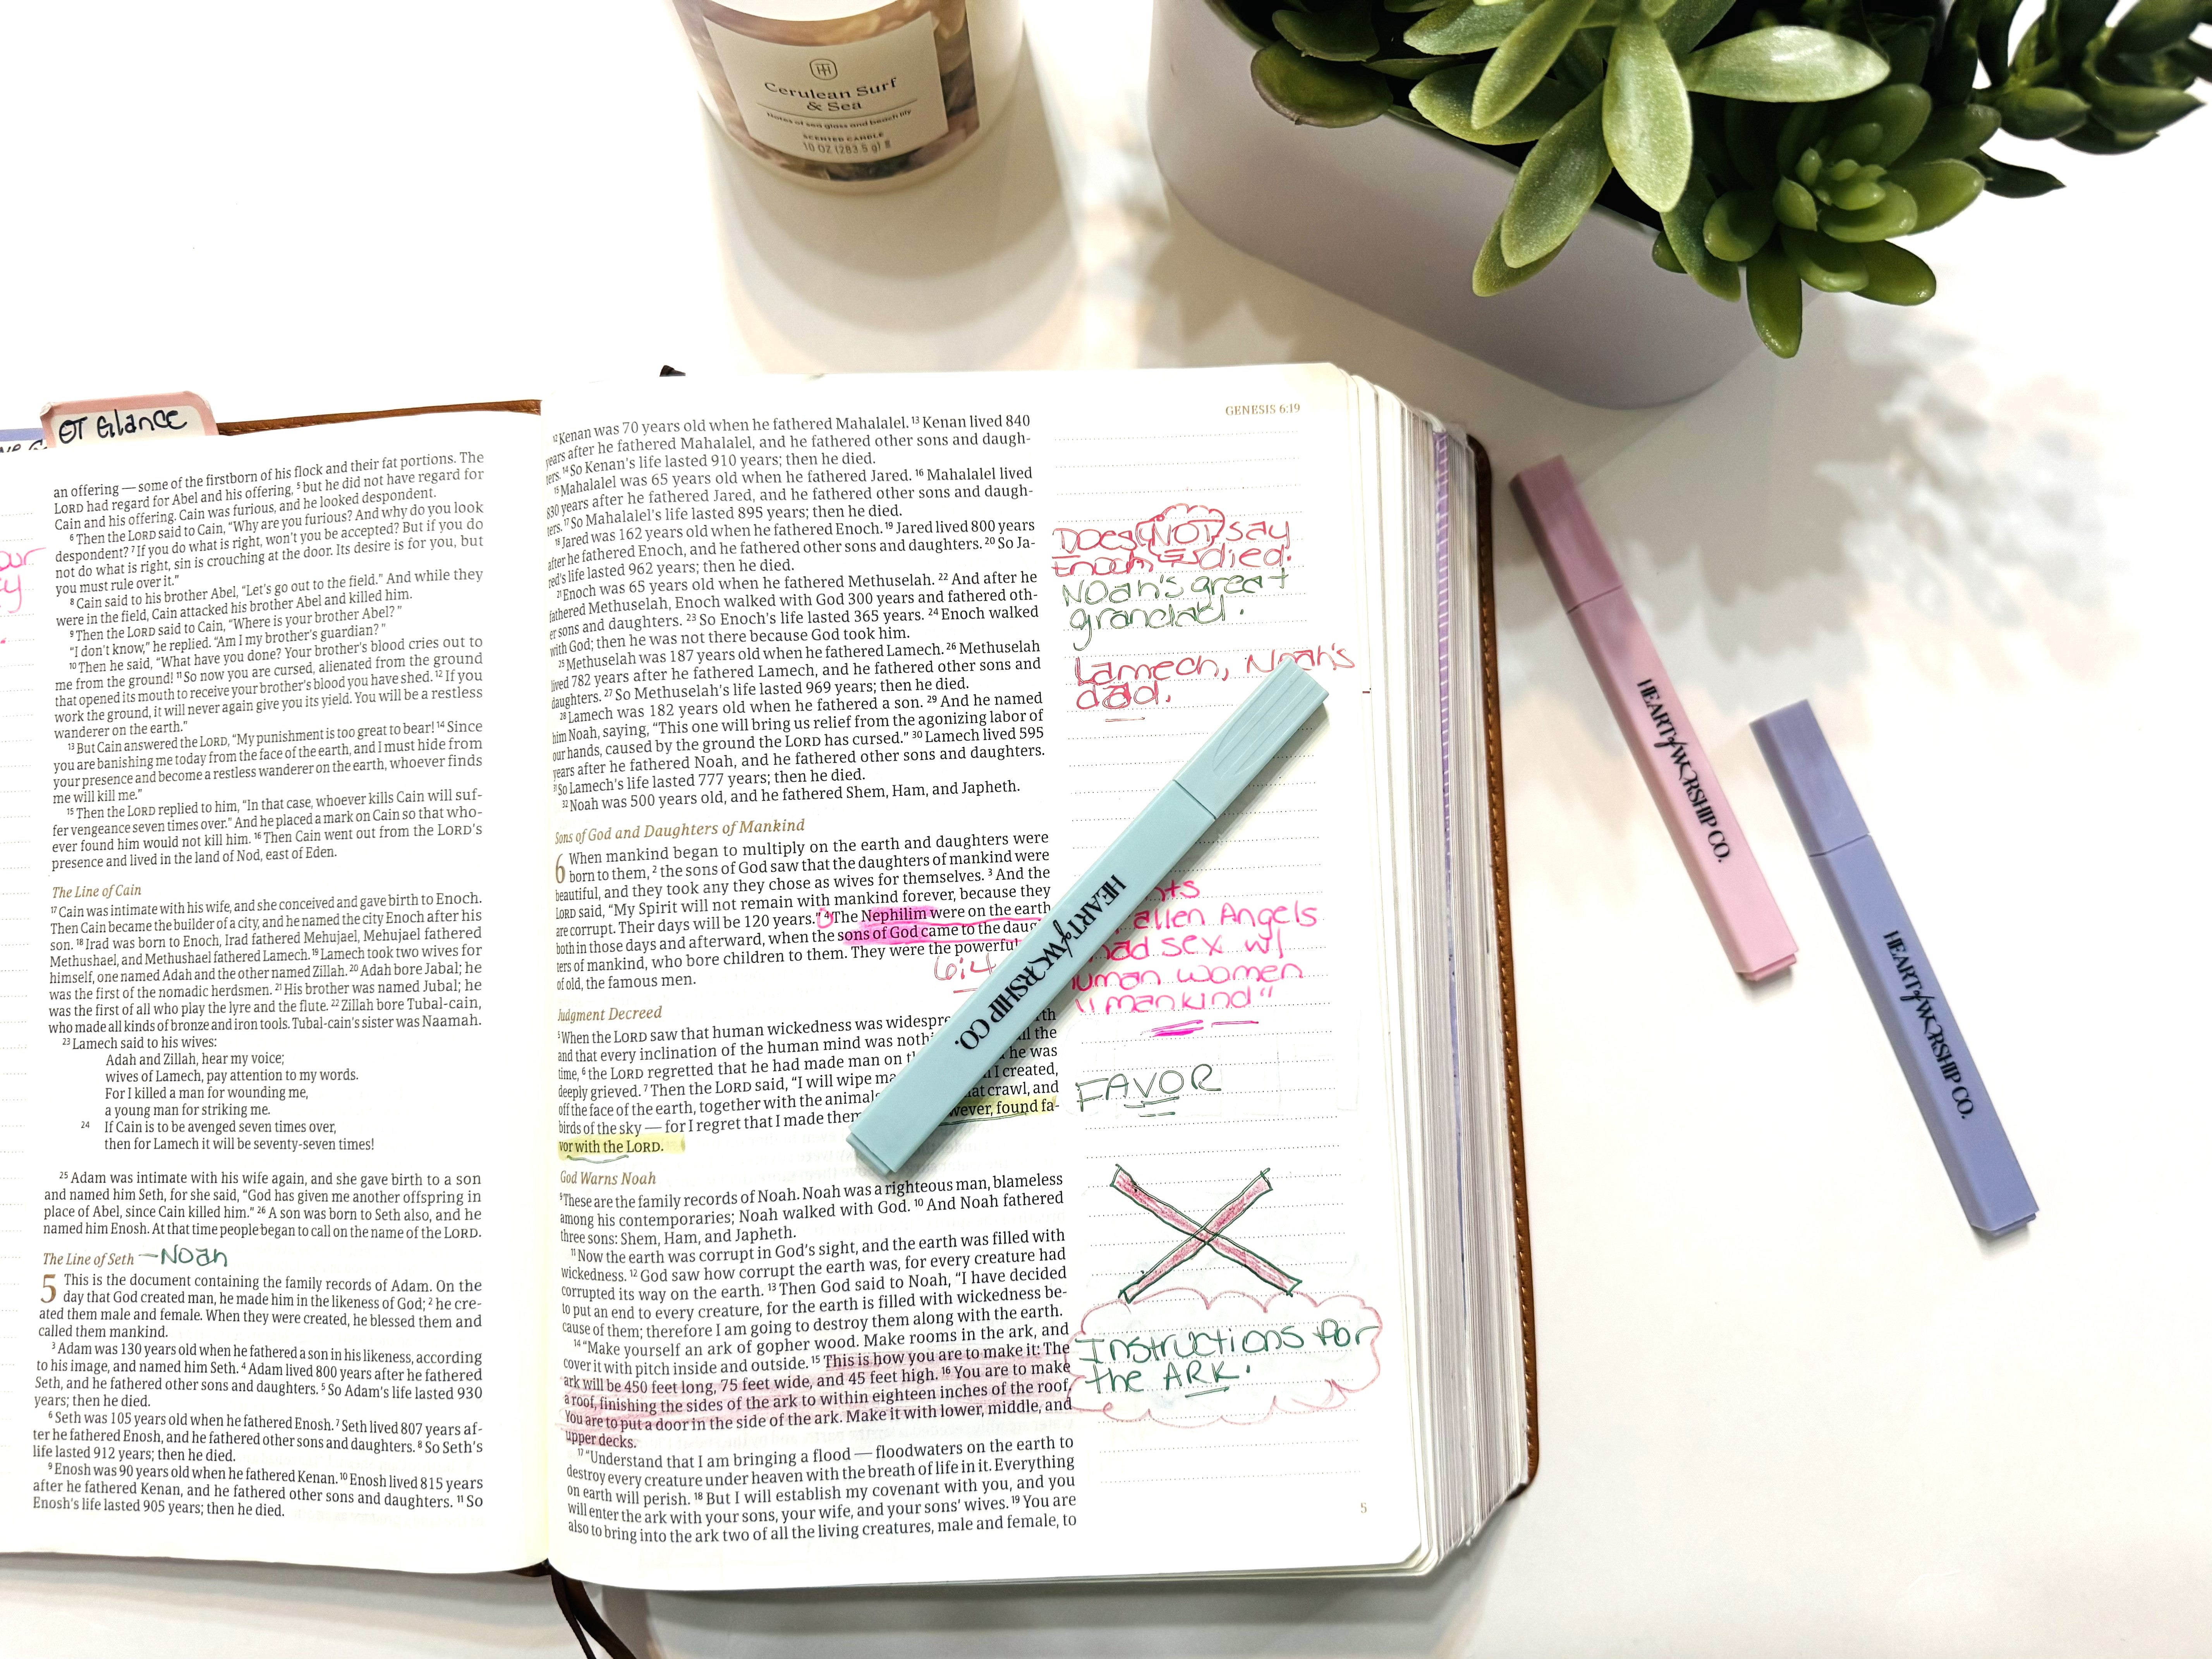 Cerulean Surf
& Sea
Notes of sea glass and beach lily
SCENTED CANDLE
10 OZ (283.5 g) e
OT Glance
an offering — some of the firstborn of his flock and their fat portions. The
LORD had regard for Abel and his offering, ⁵ but he did not have regard for
Cain and his offering. Cain was furious, and he looked despondent.
⁶ Then the LORD said to Cain, “Why are you furious? And why do you look
despondent? ⁷ If you do what is right, won’t you be accepted? But if you do
not do what is right, sin is crouching at the door. Its desire is for you, but
you must rule over it.”
⁸ Cain said to his brother Abel, “Let’s go out to the field.” And while they
were in the field, Cain attacked his brother Abel and killed him.
⁹ Then the LORD said to Cain, “Where is your brother Abel?”
“I don’t know,” he replied. “Am I my brother’s guardian?”
¹⁰ Then he said, “What have you done? Your brother’s blood cries out to
me from the ground! ¹¹ So now you are cursed, alienated from the ground
that opened its mouth to receive your brother’s blood you have shed. ¹² If you
work the ground, it will never again give you its yield. You will be a restless
wanderer on the earth.”
¹³ But Cain answered the LORD, “My punishment is too great to bear! ¹⁴ Since
you are banishing me today from the face of the earth, and I must hide from
your presence and become a restless wanderer on the earth, whoever finds
me will kill me.”
¹⁵ Then the LORD replied to him, “In that case, whoever kills Cain will suf-
fer vengeance seven times over.” And he placed a mark on Cain so that who-
ever found him would not kill him. ¹⁶ Then Cain went out from the LORD’s
presence and lived in the land of Nod, east of Eden.
The Line of Cain
¹⁷ Cain was intimate with his wife, and she conceived and gave birth to Enoch.
Then Cain became the builder of a city, and he named the city Enoch after his
son. ¹⁸ Irad was born to Enoch, Irad fathered Mehujael, Mehujael fathered
Methushael, and Methushael fathered Lamech. ¹⁹ Lamech took two wives for
himself, one named Adah and the other named Zillah. ²⁰ Adah bore Jabal; he
was the first of the nomadic herdsmen. ²¹ His brother was named Jubal; he
was the first of all who play the lyre and the flute. ²² Zillah bore Tubal-cain,
who made all kinds of bronze and iron tools. Tubal-cain’s sister was Naamah.
²³ Lamech said to his wives:
Adah and Zillah, hear my voice;
wives of Lamech, pay attention to my words.
For I killed a man for wounding me,
a young man for striking me.
²⁴ If Cain is to be avenged seven times over,
then for Lamech it will be seventy-seven times!
²⁵ Adam was intimate with his wife again, and she gave birth to a son
and named him Seth, for she said, “God has given me another offspring in
place of Abel, since Cain killed him.” ²⁶ A son was born to Seth also, and he
named him Enosh. At that time people began to call on the name of the LORD.
The Line of Seth —Noah
5 This is the document containing the family records of Adam. On the
day that God created man, he made him in the likeness of God; ² he cre-
ated them male and female. When they were created, he blessed them and
called them mankind.
³ Adam was 130 years old when he fathered a son in his likeness, according
to his image, and named him Seth. ⁴ Adam lived 800 years after he fathered
Seth, and he fathered other sons and daughters. ⁵ So Adam’s life lasted 930
years; then he died.
⁶ Seth was 105 years old when he fathered Enosh. ⁷ Seth lived 807 years af-
ter he fathered Enosh, and he fathered other sons and daughters. ⁸ So Seth’s
life lasted 912 years; then he died.
⁹ Enosh was 90 years old when he fathered Kenan. ¹⁰ Enosh lived 815 years
after he fathered Kenan, and he fathered other sons and daughters. ¹¹ So
Enosh’s life lasted 905 years; then he died.
GENESIS 6:19
¹² Kenan was 70 years old when he fathered Mahalalel. ¹³ Kenan lived 840
years after he fathered Mahalalel, and he fathered other sons and daugh-
ters. ¹⁴ So Kenan’s life lasted 910 years; then he died.
¹⁵ Mahalalel was 65 years old when he fathered Jared. ¹⁶ Mahalalel lived
830 years after he fathered Jared, and he fathered other sons and daugh-
ters. ¹⁷ So Mahalalel’s life lasted 895 years; then he died.
¹⁸ Jared was 162 years old when he fathered Enoch. ¹⁹ Jared lived 800 years
after he fathered Enoch, and he fathered other sons and daughters. ²⁰ So Ja-
red’s life lasted 962 years; then he died.
²¹ Enoch was 65 years old when he fathered Methuselah. ²² And after he
fathered Methuselah, Enoch walked with God 300 years and fathered oth-
er sons and daughters. ²³ So Enoch’s life lasted 365 years. ²⁴ Enoch walked
with God; then he was not there because God took him.
²⁵ Methuselah was 187 years old when he fathered Lamech. ²⁶ Methuselah
lived 782 years after he fathered Lamech, and he fathered other sons and
daughters. ²⁷ So Methuselah’s life lasted 969 years; then he died.
²⁸ Lamech was 182 years old when he fathered a son. ²⁹ And he named
him Noah, saying, “This one will bring us relief from the agonizing labor of
our hands, caused by the ground the LORD has cursed.” ³⁰ Lamech lived 595
years after he fathered Noah, and he fathered other sons and daughters.
³¹ So Lamech’s life lasted 777 years; then he died.
³² Noah was 500 years old, and he fathered Shem, Ham, and Japheth.
Sons of God and Daughters of Mankind
6 When mankind began to multiply on the earth and daughters were
born to them, ² the sons of God saw that the daughters of mankind were
beautiful, and they took any they chose as wives for themselves. ³ And the
LORD said, “My Spirit will not remain with mankind forever, because they
are corrupt. Their days will be 120 years.” ⁴ The Nephilim were on the earth
both in those days and afterward, when the sons of God came to the daug
ters of mankind, who bore children to them. They were the powerful
of old, the famous men.
6:4
Judgment Decreed
⁵ When the LORD saw that human wickedness was widespre th
and that every inclination of the human mind was nothi the
time, ⁶ the LORD regretted that he had made man on t he was
deeply grieved. ⁷ Then the LORD said, “I will wipe ma I created,
off the face of the earth, together with the animal at crawl, and
birds of the sky — for I regret that I made them wever, found fa-
vor with the LORD.
God Warns Noah
⁹ These are the family records of Noah. Noah was a righteous man, blameless
among his contemporaries; Noah walked with God. ¹⁰ And Noah fathered
three sons: Shem, Ham, and Japheth.
¹¹ Now the earth was corrupt in God’s sight, and the earth was filled with
wickedness. ¹² God saw how corrupt the earth was, for every creature had
corrupted its way on the earth. ¹³ Then God said to Noah, “I have decided
to put an end to every creature, for the earth is filled with wickedness be-
cause of them; therefore I am going to destroy them along with the earth.
¹⁴ “Make yourself an ark of gopher wood. Make rooms in the ark, and
cover it with pitch inside and outside. ¹⁵ This is how you are to make it: The
ark will be 450 feet long, 75 feet wide, and 45 feet high. ¹⁶ You are to make
a roof, finishing the sides of the ark to within eighteen inches of the roof.
You are to put a door in the side of the ark. Make it with lower, middle, and
upper decks.
¹⁷ “Understand that I am bringing a flood — floodwaters on the earth to
destroy every creature under heaven with the breath of life in it. Everything
on earth will perish. ¹⁸ But I will establish my covenant with you, and you
will enter the ark with your sons, your wife, and your sons’ wives. ¹⁹ You are
also to bring into the ark two of all the living creatures, male and female, to
Does NOT say
Enoch died.
Noah's great
grandad.
Lamech, Noah's
dad.
nts
allen Angels
had sex w/
uman women
"mankind"
FAVOR
Instructions for
the ARK.
5
HEART of WORSHIP CO.
HEART of WORSHIP CO.
HEART of WORSHIP CO.